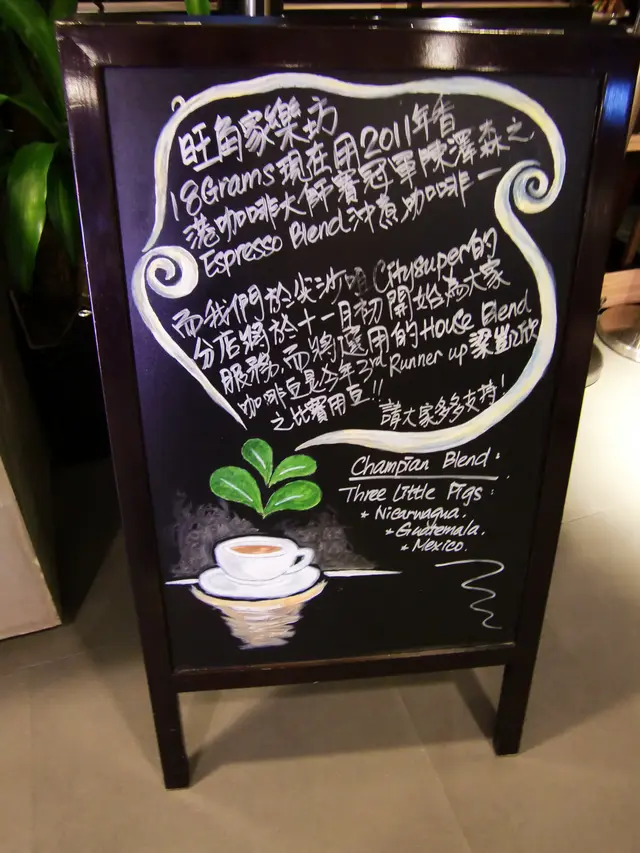 旺角家樂坊
18Grams 現在用2011年香
港咖啡大師賽冠軍陳澤森之
Espresso Blend沖煮咖啡一
而我們於尖沙咀Citysuper的
分店將於十一月初開始為大家
服務,而將選用的House Blend
咖啡豆是今年3rd Runner up 梁豈欣
之比賽用豆!!
請大家多多支持!
Champian Blend.
Three Little Pigs:
* Nicarwagua.
* Guatemala.
* Mexico.